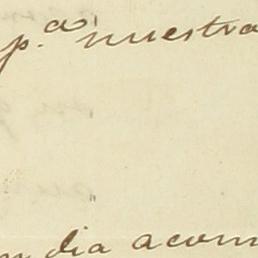 p.ª nuestra
dia acom